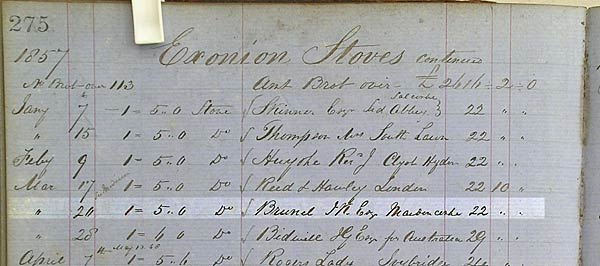 275
1857 Exonion Stoves continued
No Brot over 113 Amt Brot over £2616 - 2 - 0
Salcombe
Jany 7 1 = 5 .. 0 Stove Skinner Esq Sid Abbey 22 " "
" 15 1 = 5 .. 0 Do Thompson Mrs South Lawn 22 " "
Feby 9 1 = 5 .. 0 Do Huyshe Revd J Clyst Hydon 22 " "
Mar 17 1 = 5 .. 0 Do Reed & Hawley London 22 10 "
" 20 1 = 5 .. 0 Do Brunel IK Esq 22 " "
" 28 1 = 6 0 Do Bidwell Esq for Australian 29 " "
May
April 7 1 = 5 .. 6 Do Rogers Lady